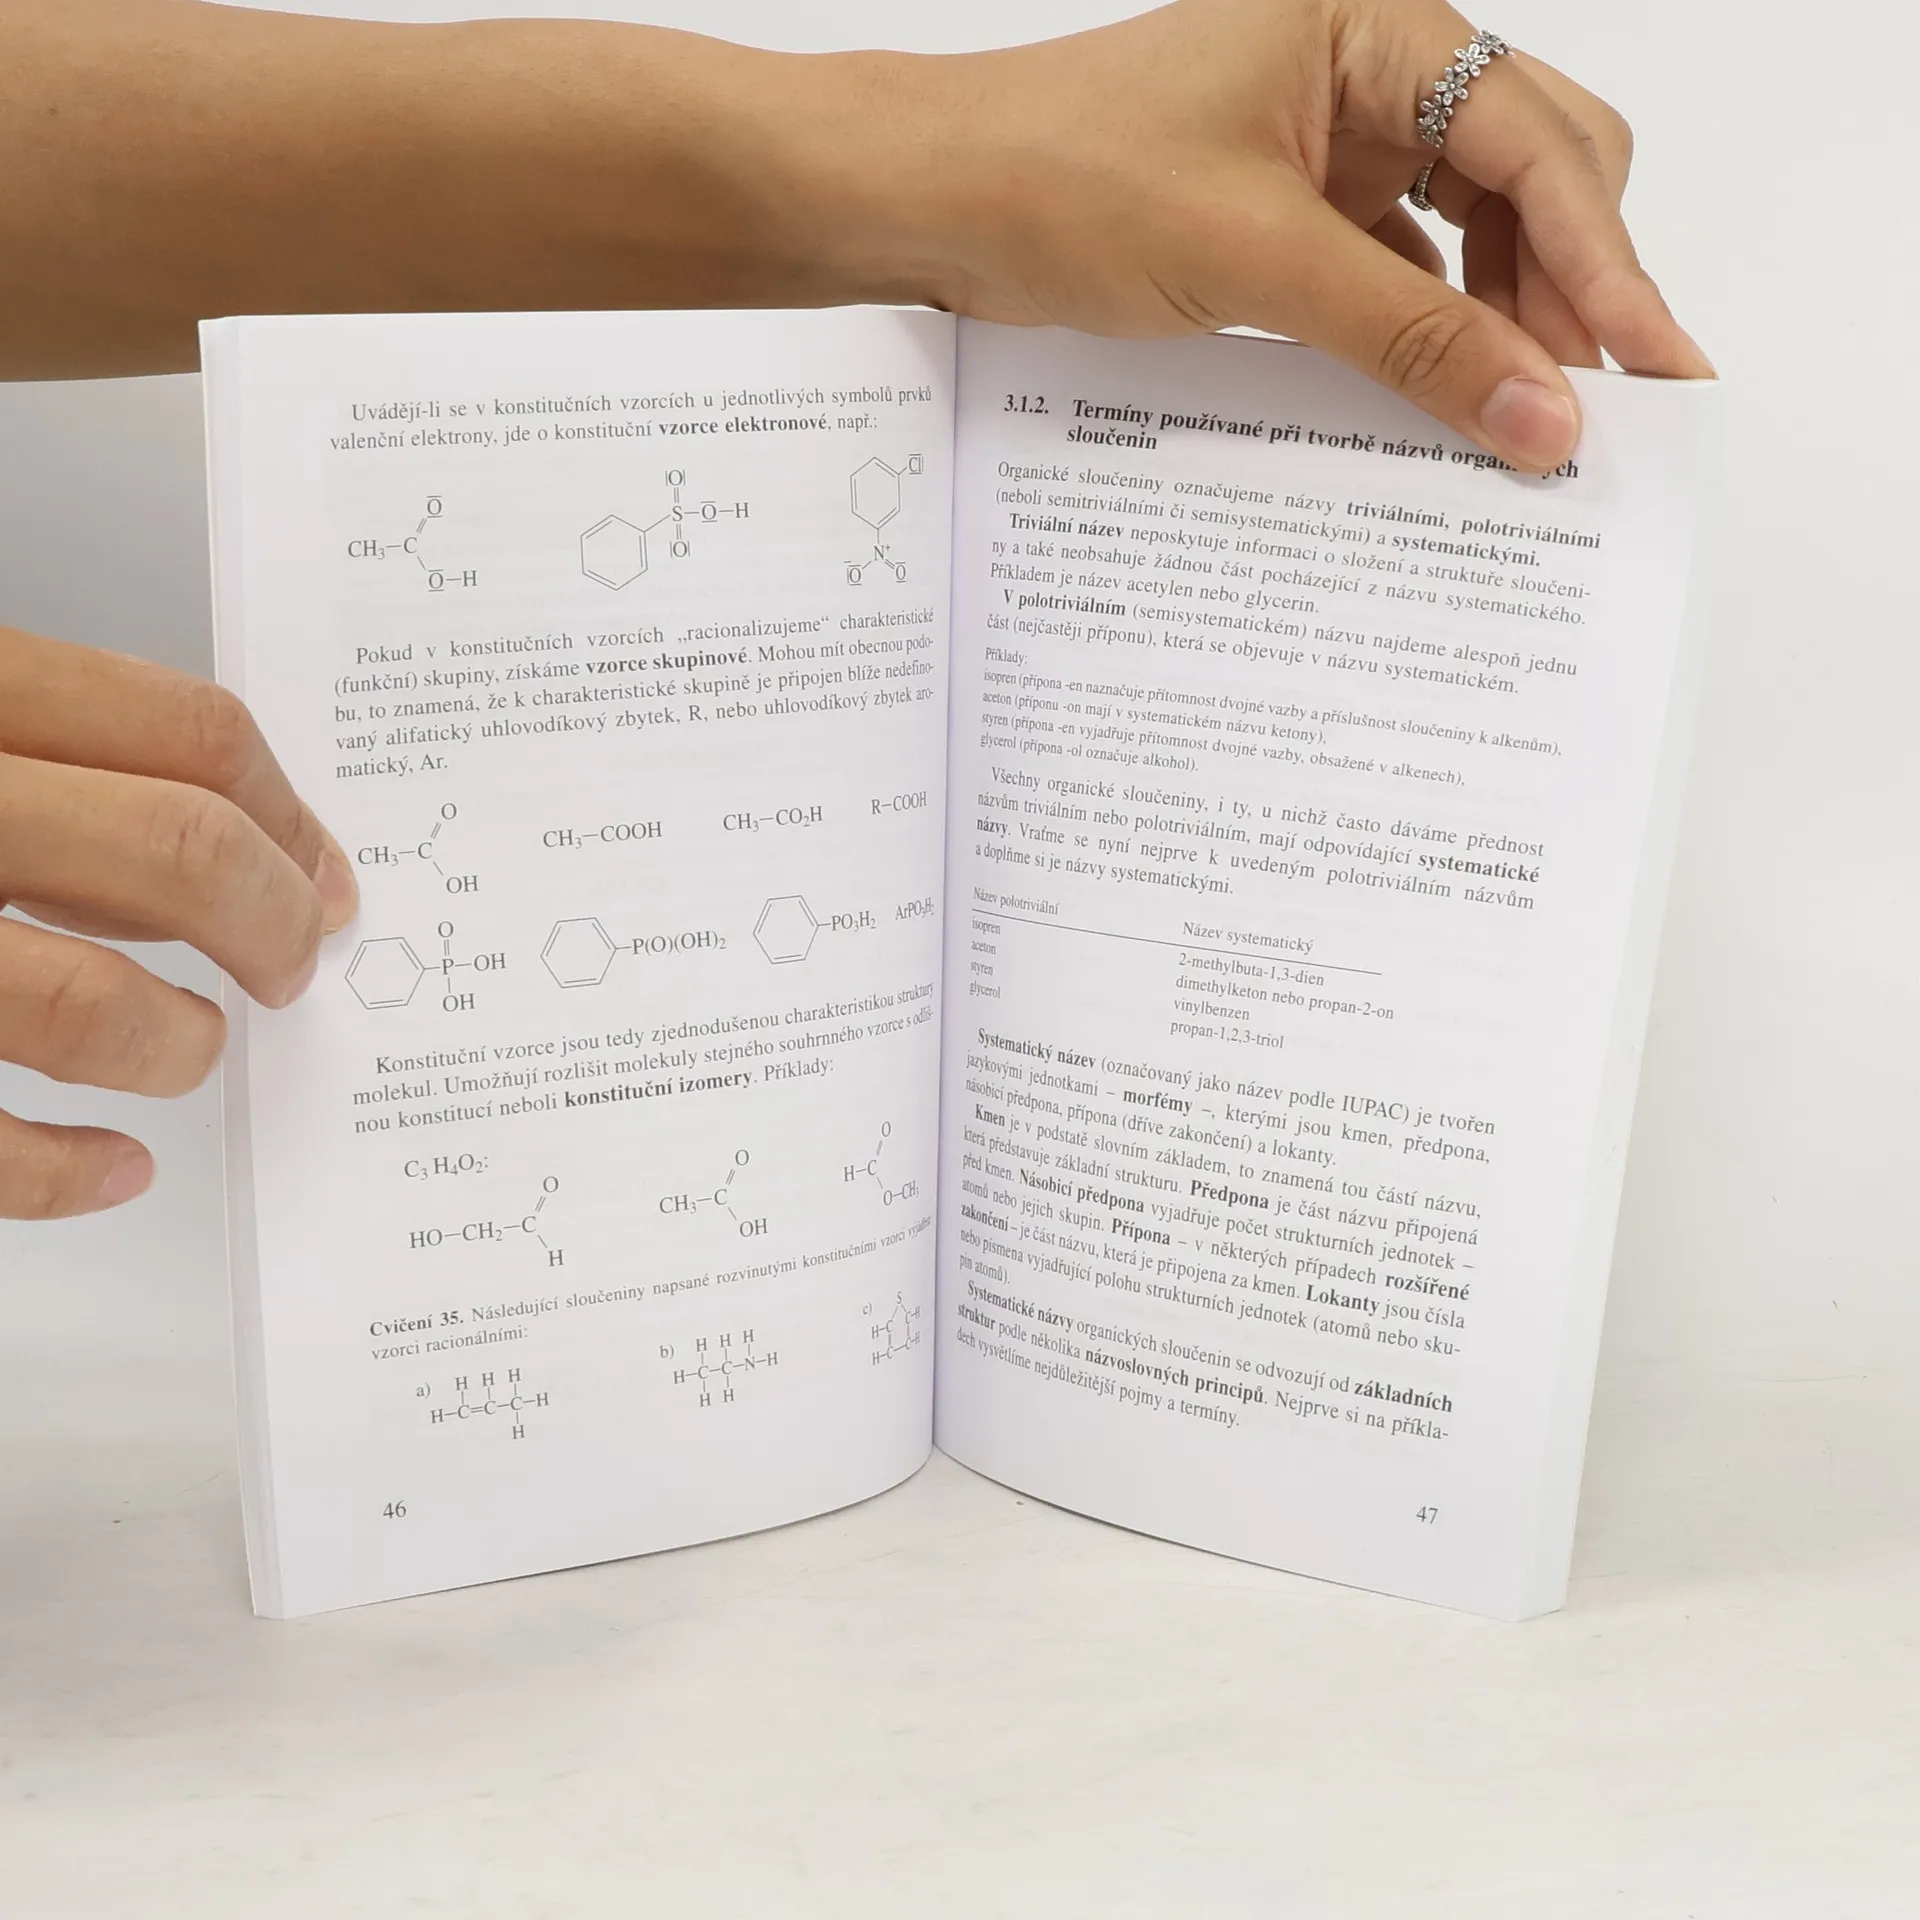 Uvádějí-li se v konstitučních vzorcích u jednotlivých symbolů prvků
valenční elektrony, jde o konstituční vzorce elektronové, např.:
CH3–C
O
O–H
|O|
S–O–H
|O|
Cl|
N+
|O
O
Pokud v konstitučních vzorcích „racionalizujeme“ charakteristické
(funkční) skupiny, získáme vzorce skupinové. Mohou mít obecnou podo-
bu, to znamená, že k charakteristické skupině je připojen blíže nedefino-
vaný alifatický uhlovodíkový zbytek, R, nebo uhlovodíkový zbytek aro-
matický, Ar.
O
CH3–C
OH
CH3–COOH
CH3–CO2H
R–COOH
O
P–OH
OH
–P(O)(OH)2
–PO3H2
ArPO3H2
Konstituční vzorce jsou tedy zjednodušenou charakteristikou struktury
molekul. Umožňují rozlišit molekuly stejného souhrnného vzorce s odliš-
nou konstitucí neboli konstituční izomery. Příklady:
C3 H4O2:
O
HO–CH2–C
H
O
CH3–C
OH
O
H–C
O–CH3
Cvičení 35. Následující sloučeniny napsané rozvinutými konstitučními vzorci vyjádřete
vzorci racionálními:
a)
H H H
H–C=C–C–H
H
b)
H H H
H–C–C–N–H
H H
c)
S
H–C C–H
H–C–C–H
46
3.1.2. Termíny používané při tvorbě názvů
sloučenin
Organické sloučeniny označujeme názvy triviálními, polotriviálními
(neboli semitriviálními či semisystematickými) a systematickými.
Triviální název neposkytuje informaci o složení a struktuře sloučeni-
ny a také neobsahuje žádnou část pocházející z názvu systematického.
Příkladem je název acetylen nebo glycerin.
V polotriviálním (semisystematickém) názvu najdeme alespoň jednu
část (nejčastěji příponu), která se objevuje v názvu systematickém.
Příklady:
isopren (přípona -en naznačuje přítomnost dvojné vazby a příslušnost sloučeniny k alkenům),
aceton (příponu -on mají v systematickém názvu ketony),
styren (přípona -en vyjadřuje přítomnost dvojné vazby, obsažené v alkenech),
glycerol (přípona -ol označuje alkohol).
Všechny organické sloučeniny, i ty, u nichž často dáváme přednost
názvům triviálním nebo polotriviálním, mají odpovídající systematické
názvy. Vraťme se nyní nejprve k uvedeným polotriviálním názvům
a doplňme si je názvy systematickými.
Název polotriviální Název systematický
isopren 2-methylbuta-1,3-dien
aceton dimethylketon nebo propan-2-on
styren vinylbenzen
glycerol propan-1,2,3-triol
Systematický název (označovaný jako název podle IUPAC) je tvořen
jazykovými jednotkami – morfémy –, kterými jsou kmen, předpona,
násobicí předpona, přípona (dříve zakončení) a lokanty.
Kmen je v podstatě slovním základem, to znamená tou částí názvu,
která představuje základní strukturu. Předpona je část názvu připojená
před kmen. Násobicí předpona vyjadřuje počet strukturních jednotek –
atomů nebo jejich skupin. Přípona – v některých případech rozšířené
zakončení – je část názvu, která je připojena za kmen. Lokanty jsou čísla
nebo písmena vyjadřující polohu strukturních jednotek (atomů nebo sku-
pin atomů).
Systematické názvy organických sloučenin se odvozují od základních
struktur podle několika názvoslovných principů. Nejprve si na příkla-
dech vysvětlíme nejdůležitější pojmy a termíny.
47